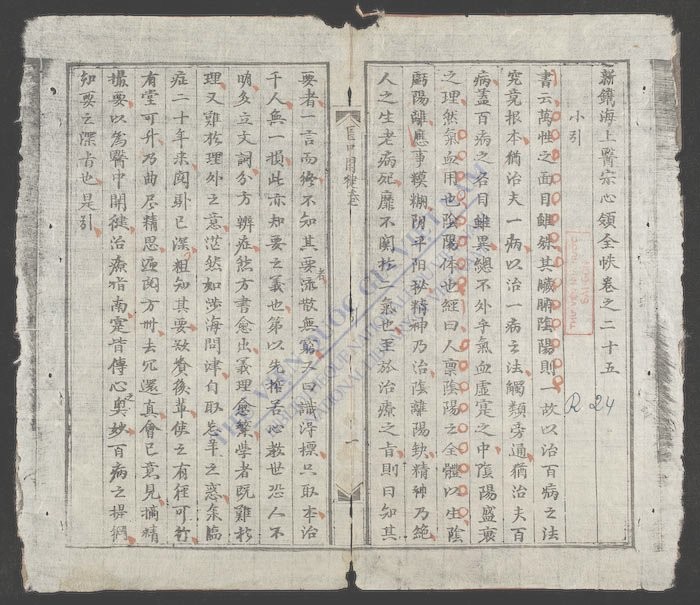 新鐫海上醫宗心領全帙卷之二十五
小引
書云萬姓之面目雖殊其臟腑陰陽則一故以治百病之法
究竟根本猶治夫一病以治一病之法觸類旁通猶治夫百
病蓋百病之名目雖異總不外乎氣血虛寔之中陰陽盛衰
之理然氣血用也陰陽体也經曰人禀陰陽之全體以生陰
陽離應事糢糊陰平陽秘精神乃治陰離陽缺精神乃絕
人之生老病死靡不関於二氣也至於治療之旨則曰知其
R 24
醫中関鍵
一
要者一言而終不知其要流散無窮又曰識得標只取本治
千人無一損此亦知要之義也第以先哲苦心救世恐人不
明多立文詞分方辨症然方書愈出義理愈繁學者既難於
理又難於理外之意茫然如涉海問津自取忘羊之惑余臨
症二十年來閱歷已深粗知其要欲賚後軰使之有徑可行
有堂可升乃曲尽精思遍閱方册去冗還真會已意見摘精
撮要以為醫中関鍵治療指南寔皆傳心之奧妙百病之提綱
知要之深者也是引
THƯ VIỆN QUỐC GIA VIỆT NAM